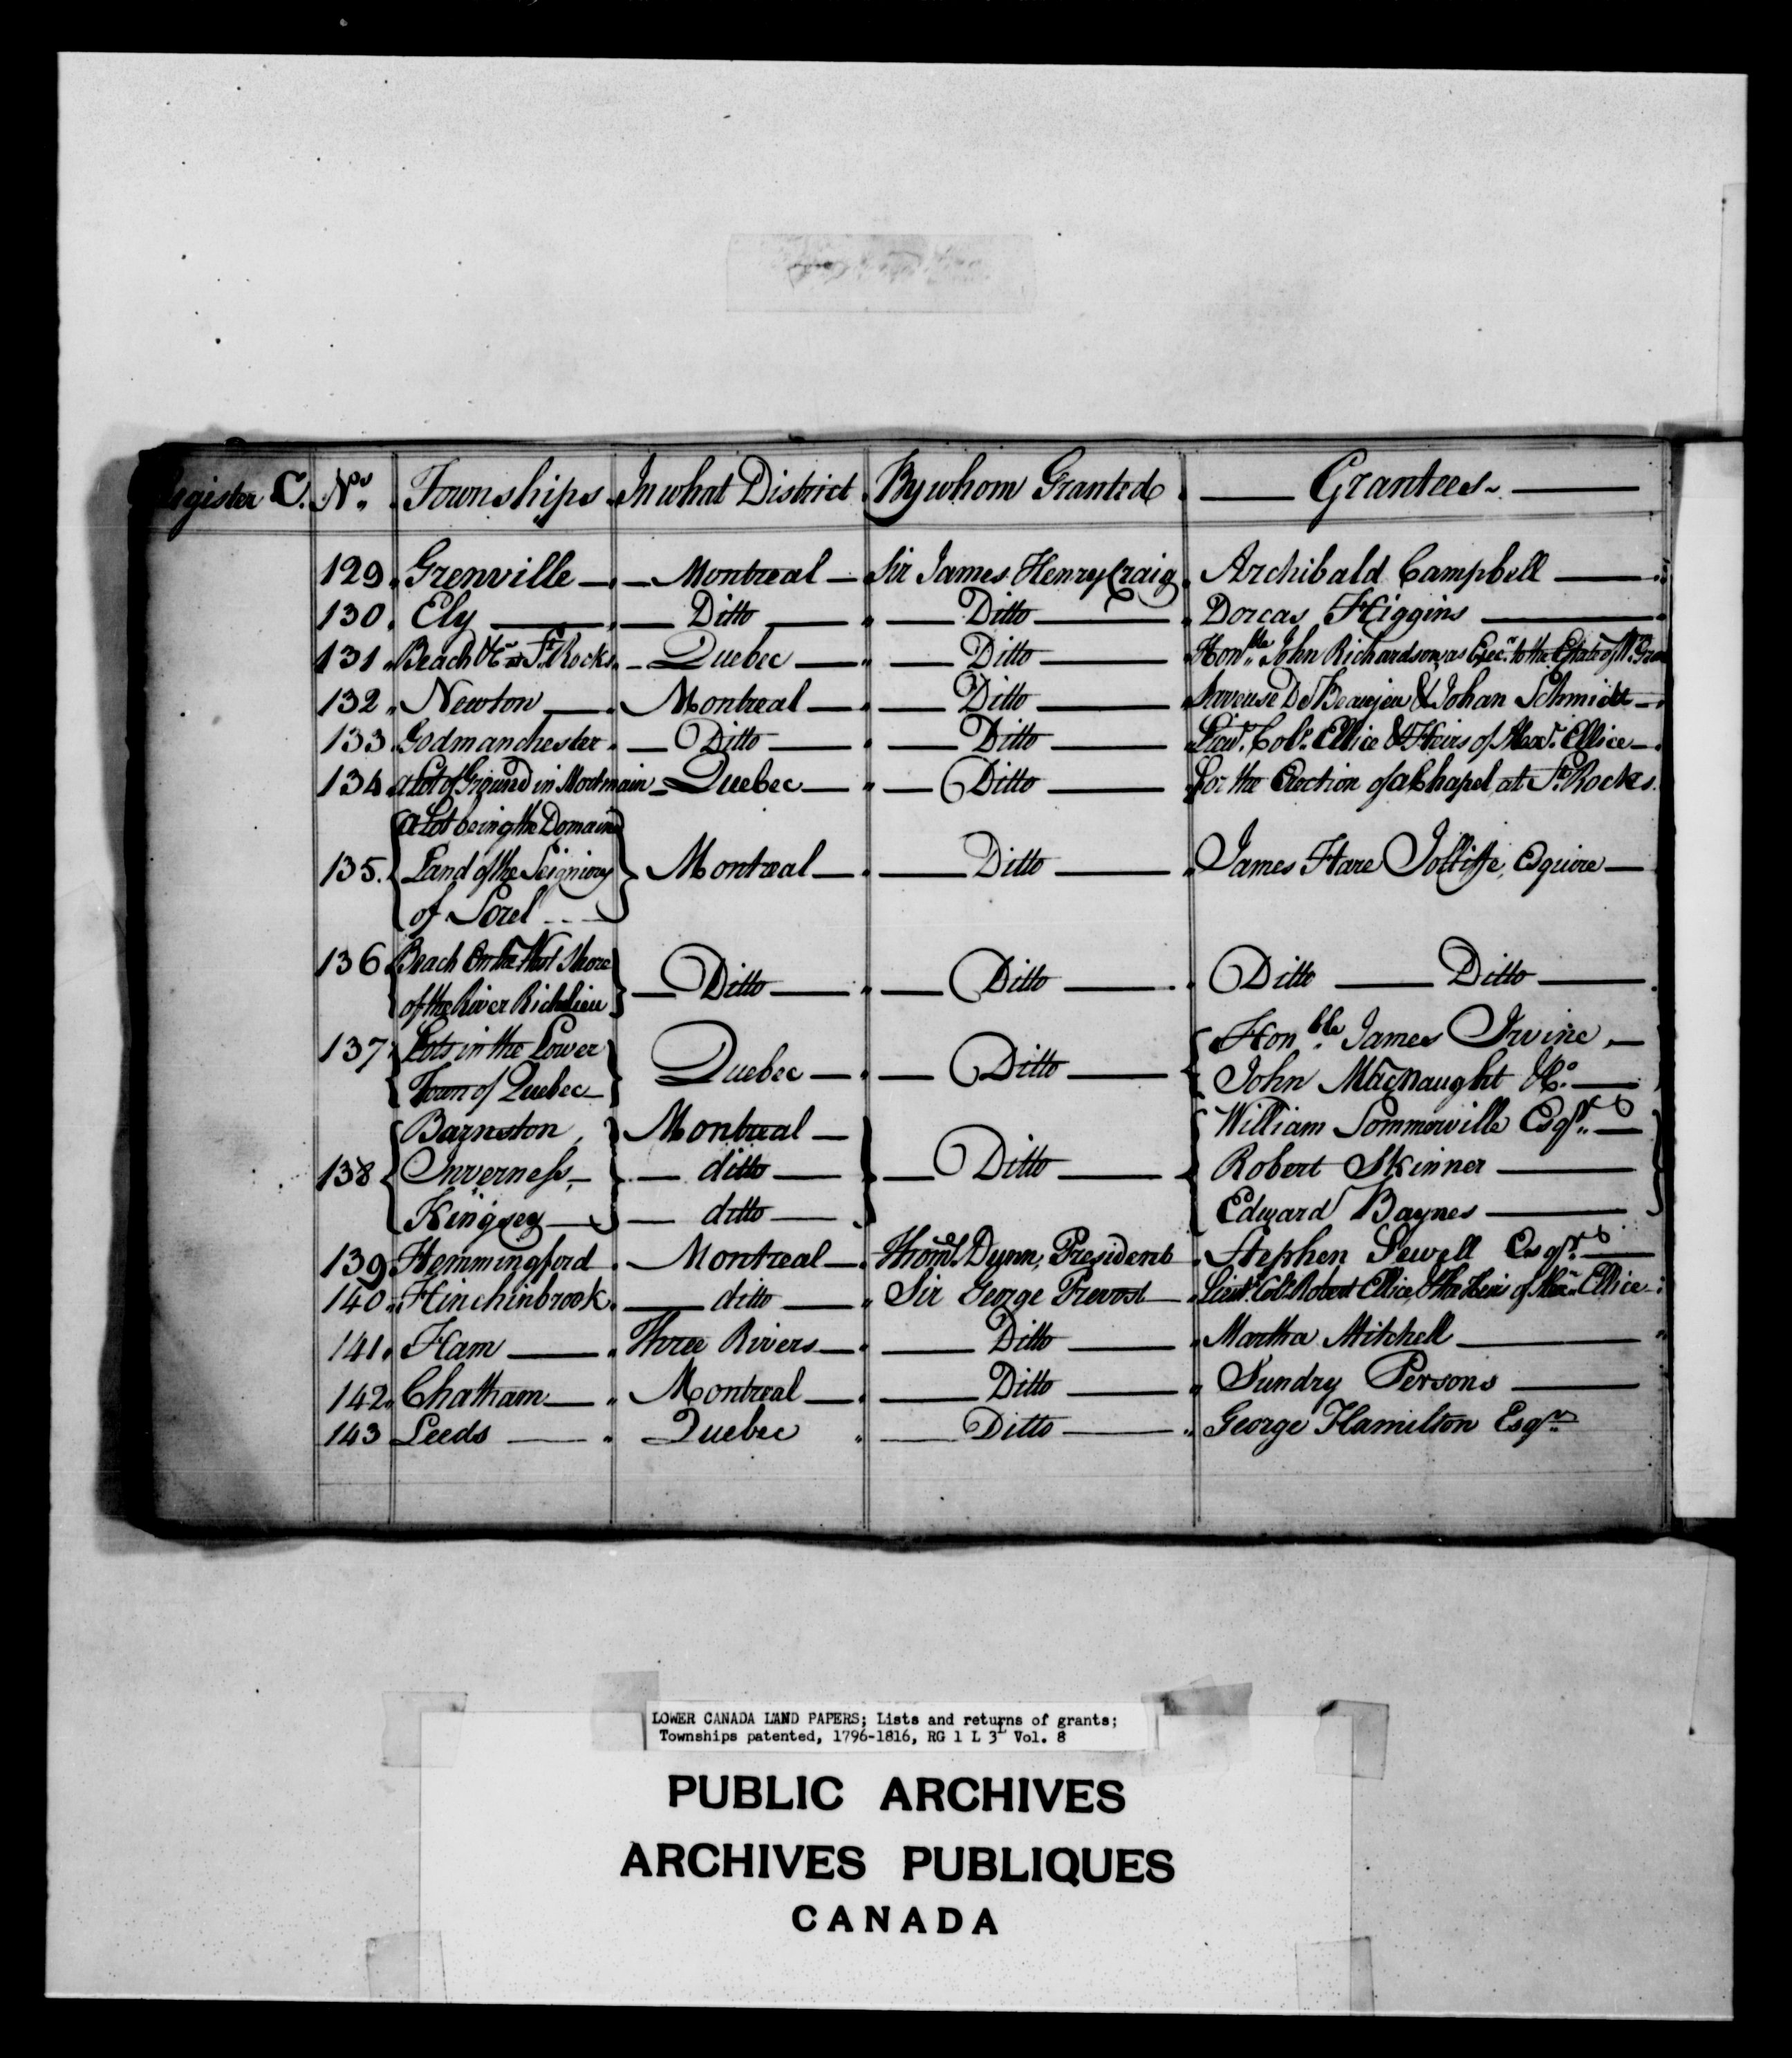 Register C. Nos. Townships In what District By whom Granted Grantees
129 Grenville Montreal Sir James Henry Craig Archibald Campbell
130 Ely Ditto Ditto Dorcas Higgins
131 Beach &c at St Rocks Quebec Ditto Honble John Richardson, as Execr to the Estate of Wm Grant
132 Newton Montreal Ditto Saveuse De Beaujeu & Johan Schmidt
133 Godmanchester Ditto Ditto Lieut. Coll. Ellice & Heirs of Alexr. Ellice
134 a Lot of Ground in Mortmain Quebec Ditto For the Erection of a Chapel at St. Rocks
a Lot being the Domain
135 Land of the Seigniory Montreal Ditto James Hare Jolliffe, Esquire
of Sorel
136 Beach on the West Shore
of the River Richelieu Ditto Ditto Ditto Ditto
137 Lots in the Lower Honble. James Irvine
Town of Quebec Quebec Ditto John Macnaught &c.
Barnston Montreal William Sommerville Esqr.
138 Inverness ditto Ditto Robert Skinner
Kingsey ditto Edward Baynes
139 Hemmingford Montreal Thoms. Dunn, President Stephen Sewell Esqr.
140 Hinchinbrook ditto Sir George Prevost Lieut. Coll. Robert Ellice & the Heirs of Alexr. Ellice
141 Ham Three Rivers Ditto Martha Mitchell
142 Chatham Montreal Ditto Sundry Persons
143 Leeds Quebec Ditto George Hamilton Esqr.
LOWER CANADA LAND PAPERS; Lists and returns of grants;
Townships patented, 1796-1816, RG 1 L 3L Vol. 8
PUBLIC ARCHIVES
ARCHIVES PUBLIQUES
CANADA